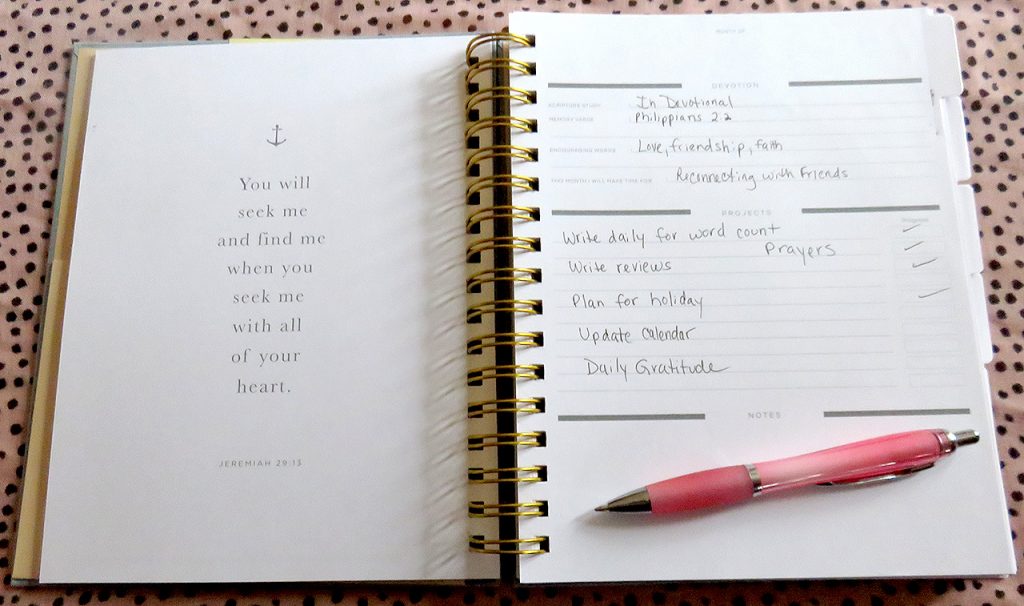 You will
seek me
and find me
when you
seek me
with all
of your
heart.
JEREMIAH 29:13
MONTH OF
DEVOTION
SCRIPTURE STUDY In Devotional
MEMORY VERSE Philippians 2:2
ENCOURAGING WORDS Love, friendship, faith
THIS MONTH I WILL MAKE TIME FOR Reconnecting with Friends
PROJECTS
Progress
Write daily for word count
Prayers
Write reviews
Plan for holiday
Update Calendar
Daily Gratitude
NOTES